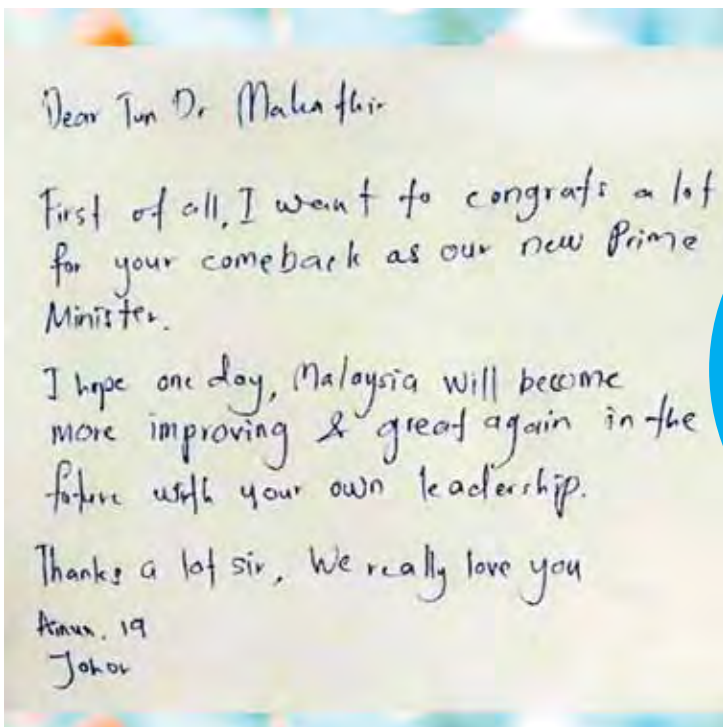 Dear Tun Dr Mahathir
First of all, I want to congrats a lot
for your comeback as our new Prime
Minister.
I hope one day, Malaysia will become
more improving & great again in the
future with your own leadership.
Thanks a lot sir, We really love you
19
Johor